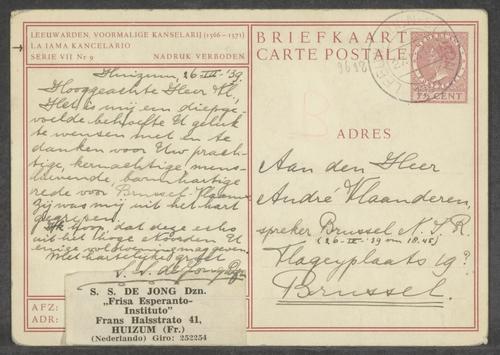 LEEUWARDEN, VOORMALIGE KANSELARIJ (1566-1571)
LA IAMA KANCELARIO
SERIE VII Nr 9 NADRUK VERBODEN
BRIEFKAART
CARTE POSTALE
7½ CENT
Huizum, 26-III-'39.
Hooggeachte Heer Vl.,
Het is mij een diepge-
voelde behoefte U geluk
te wensen met en te
danken voor Uw prach-
tige, kernachtige, mens-
lievende, barmhartige
rede voor Brussel-Vlaams
Zij was mij uit het hart
gegrepen.
Ik hoop, dat deze echo
uit het hoge Noorden U
enige voldoening mag geven.
Met hartelijke groet
S. S. de Jong Dzn
ADRES
Aan den Heer
André Vlaanderen,
spreker Brussel N.I.R.
(26-III-'39 om 18.45)
Flageyplaats 19?
Brussel.
AFZ:
ADR:
S. S. DE JONG Dzn.
„Frisa Esperanto-
Instituto"
Frans Halsstrato 41,
HUIZUM (Fr.)
(Nederlando) Giro: 252254